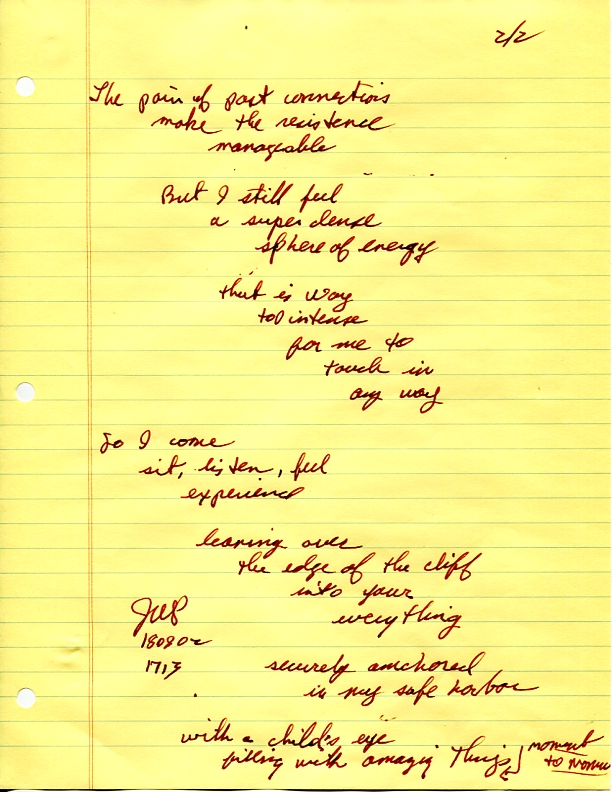 2/2
The pain of past connections
make the resistence
manageable
But I still feel
a super dense
sphere of energy
that is way
too intense
for me to
touch in
any way
So I come
sit, listen, feel
experience
leaning over
the edge of the cliff
into your
everything
180802
1713
securely anchored
in my safe harbor
with a child's eye
filling with amazing things
moment
to moment